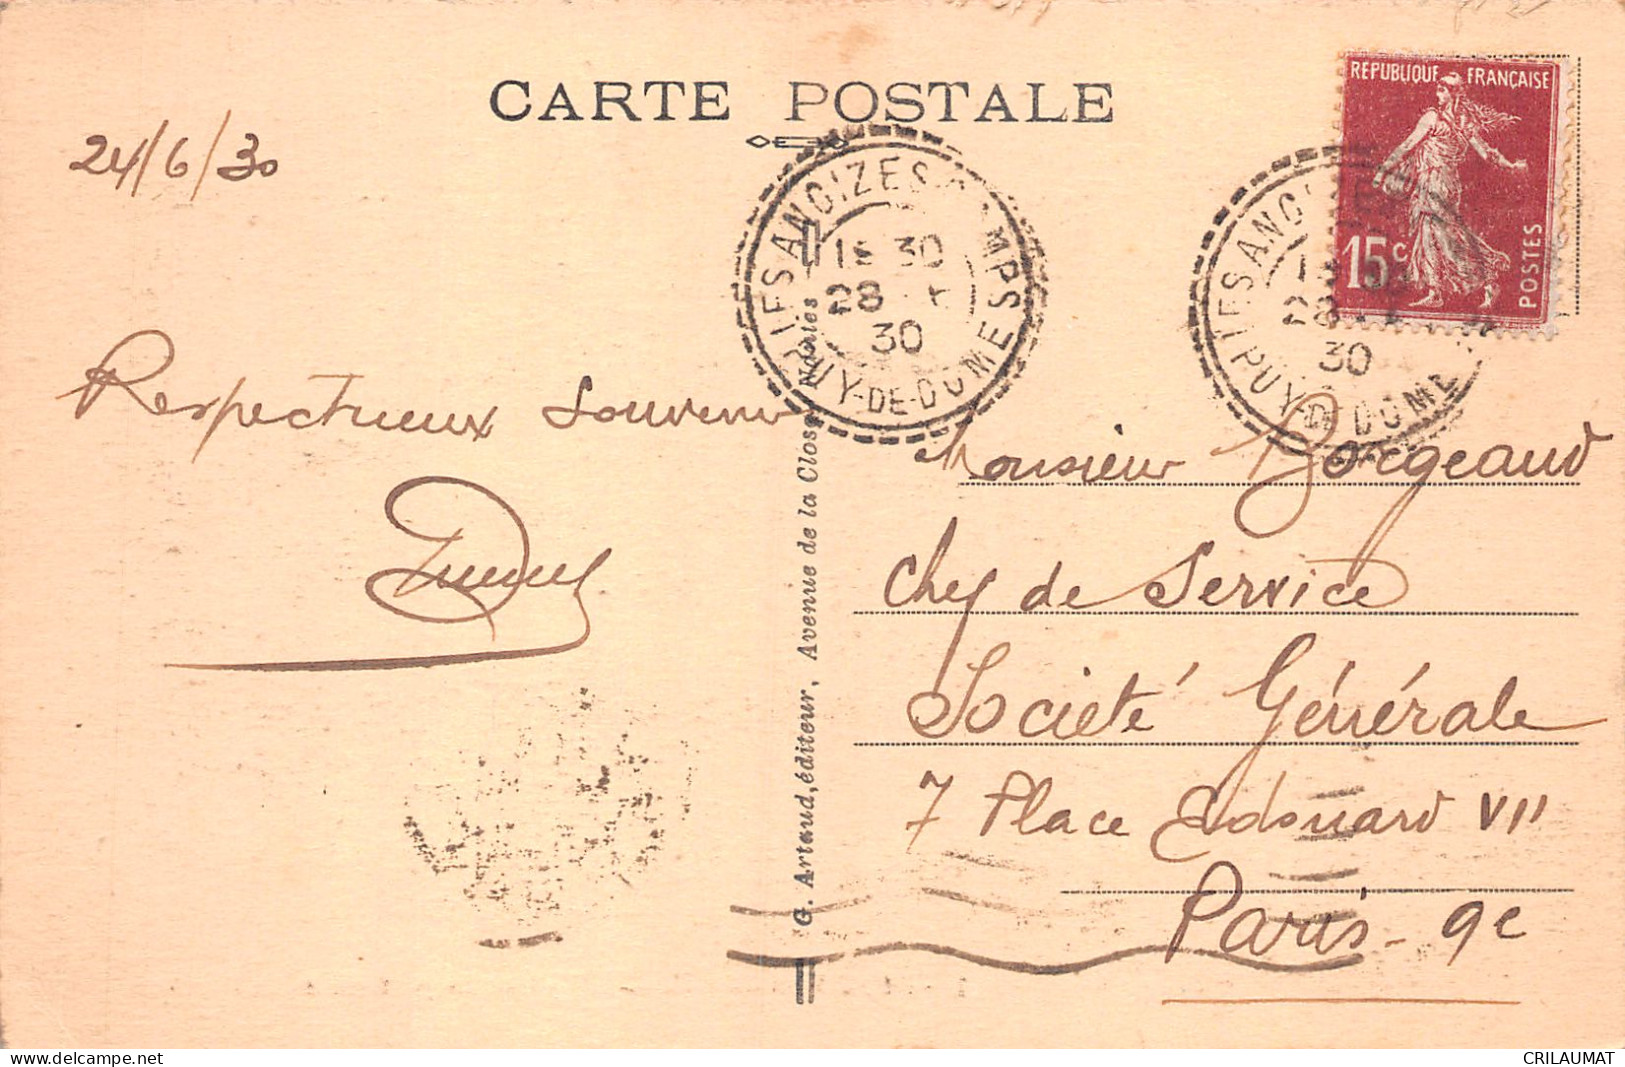 CARTE POSTALE
24/6/30
RÉPUBLIQUE FRANÇAISE
15c
POSTES
30
28
30
PUY-DE-DOME
28
30
PUY-DE-DOME
Respectueux souvenir
Monsieur Borgeaud
Chef de Service
Société Générale
7 Place Edouard VII
Paris - 9e
G. Artaud, éditeur, Avenue de la Close, Nantes
www.delcampe.net
CRILAUMAT